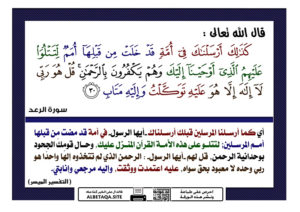 قال الله تعالى :
كَذَٰلِكَ أَرْسَلْنَاكَ فِي أُمَّةٍ قَدْ خَلَتْ مِن قَبْلِهَا أُمَمٌ لِّتَتْلُوَا۟
عَلَيْهِمُ الَّذِي أَوْحَيْنَا إِلَيْكَ وَهُمْ يَكْفُرُونَ بِالرَّحْمَٰنِ قُلْ هُوَ رَبِّي
لَا إِلَٰهَ إِلَّا هُوَ عَلَيْهِ تَوَكَّلْتُ وَإِلَيْهِ مَتَابِ ٣٠
سورة الرعد
أي كما أرسلنا المرسلين قبلك أرسلناك -أيها الرسول- في أمة قد مضت من قبلها
أمم المرسلين؛ لتتلو على هذه الأمة القرآن المنزل عليك، وحال قومك الجحود
بوحدانية الرحمن، قل لهم -أيها الرسول-: الرحمن الذي لم تتخذوه إلها واحدا هو
ربي وحده لا معبود بحق سواه، عليه اعتمدت ووثقت، وإليه مرجعي وإنابتي.
(التفسير الميسر)
ALBETAQA.SITE
احرص على طباعة
ونشر هذه الورقة